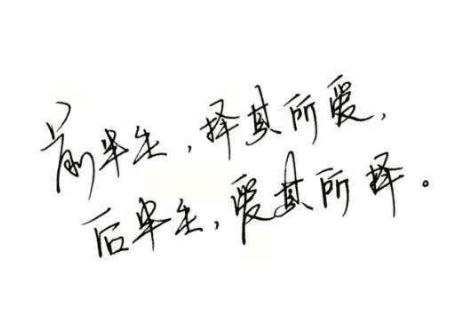 前半生，择其所爱，
后半生，爱其所择。